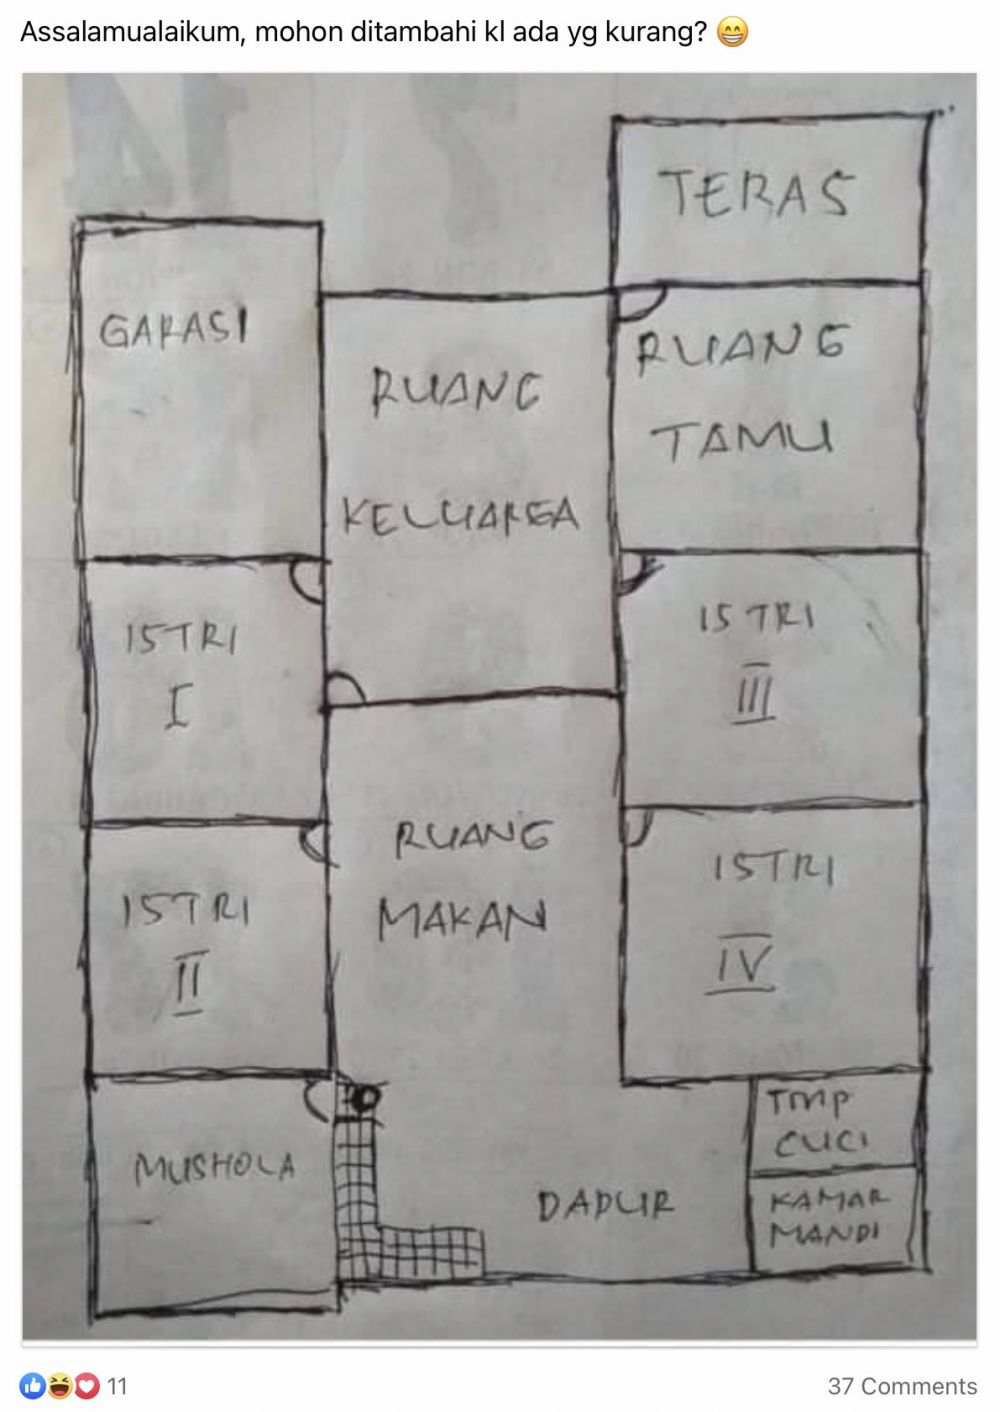 Assalamualaikum, mohon ditambahi kl ada yg kurang? 😁
TERAS
GARASI
RUANG
TAMU
RUANG
KELUARGA
ISTRI
I
ISTRI
III
RUANG
MAKAN
ISTRI
II
ISTRI
IV
MUSHOLA
DAPUR
TMP
CUCI
KAMAR
MANDI
11
37 Comments